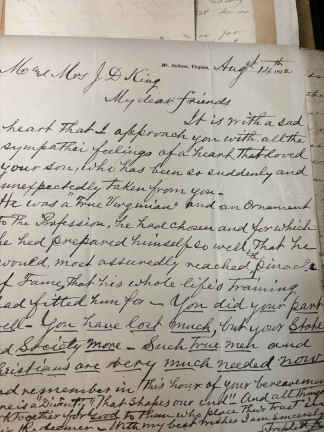 Mt. Jackson, Virginia, Augst 14th
Mr & Mrs J. D. King
My dear friends
It is with a sad
heart that I approach you with all the
sympathetic feelings of a heart that loved
your son, who has been so suddenly and
unexpectedly taken from you –
He was a true Virginian and an Ornament
to the Profession, he had chosen and for which
he had prepared himself so well, That he
would, most assuredly reached the pinacle
of Fame, That his whole life's training
had fitted him for – You did your part
well – You have lost much, but your State
and Society more – Such true men and
Christians are very much needed now
and remember in this hour of your bereavement
there is a "Divinity" That shapes our ends" And all things
work together for good to them who place their trust in
the Redeemer – With my best wishes I am sincerely